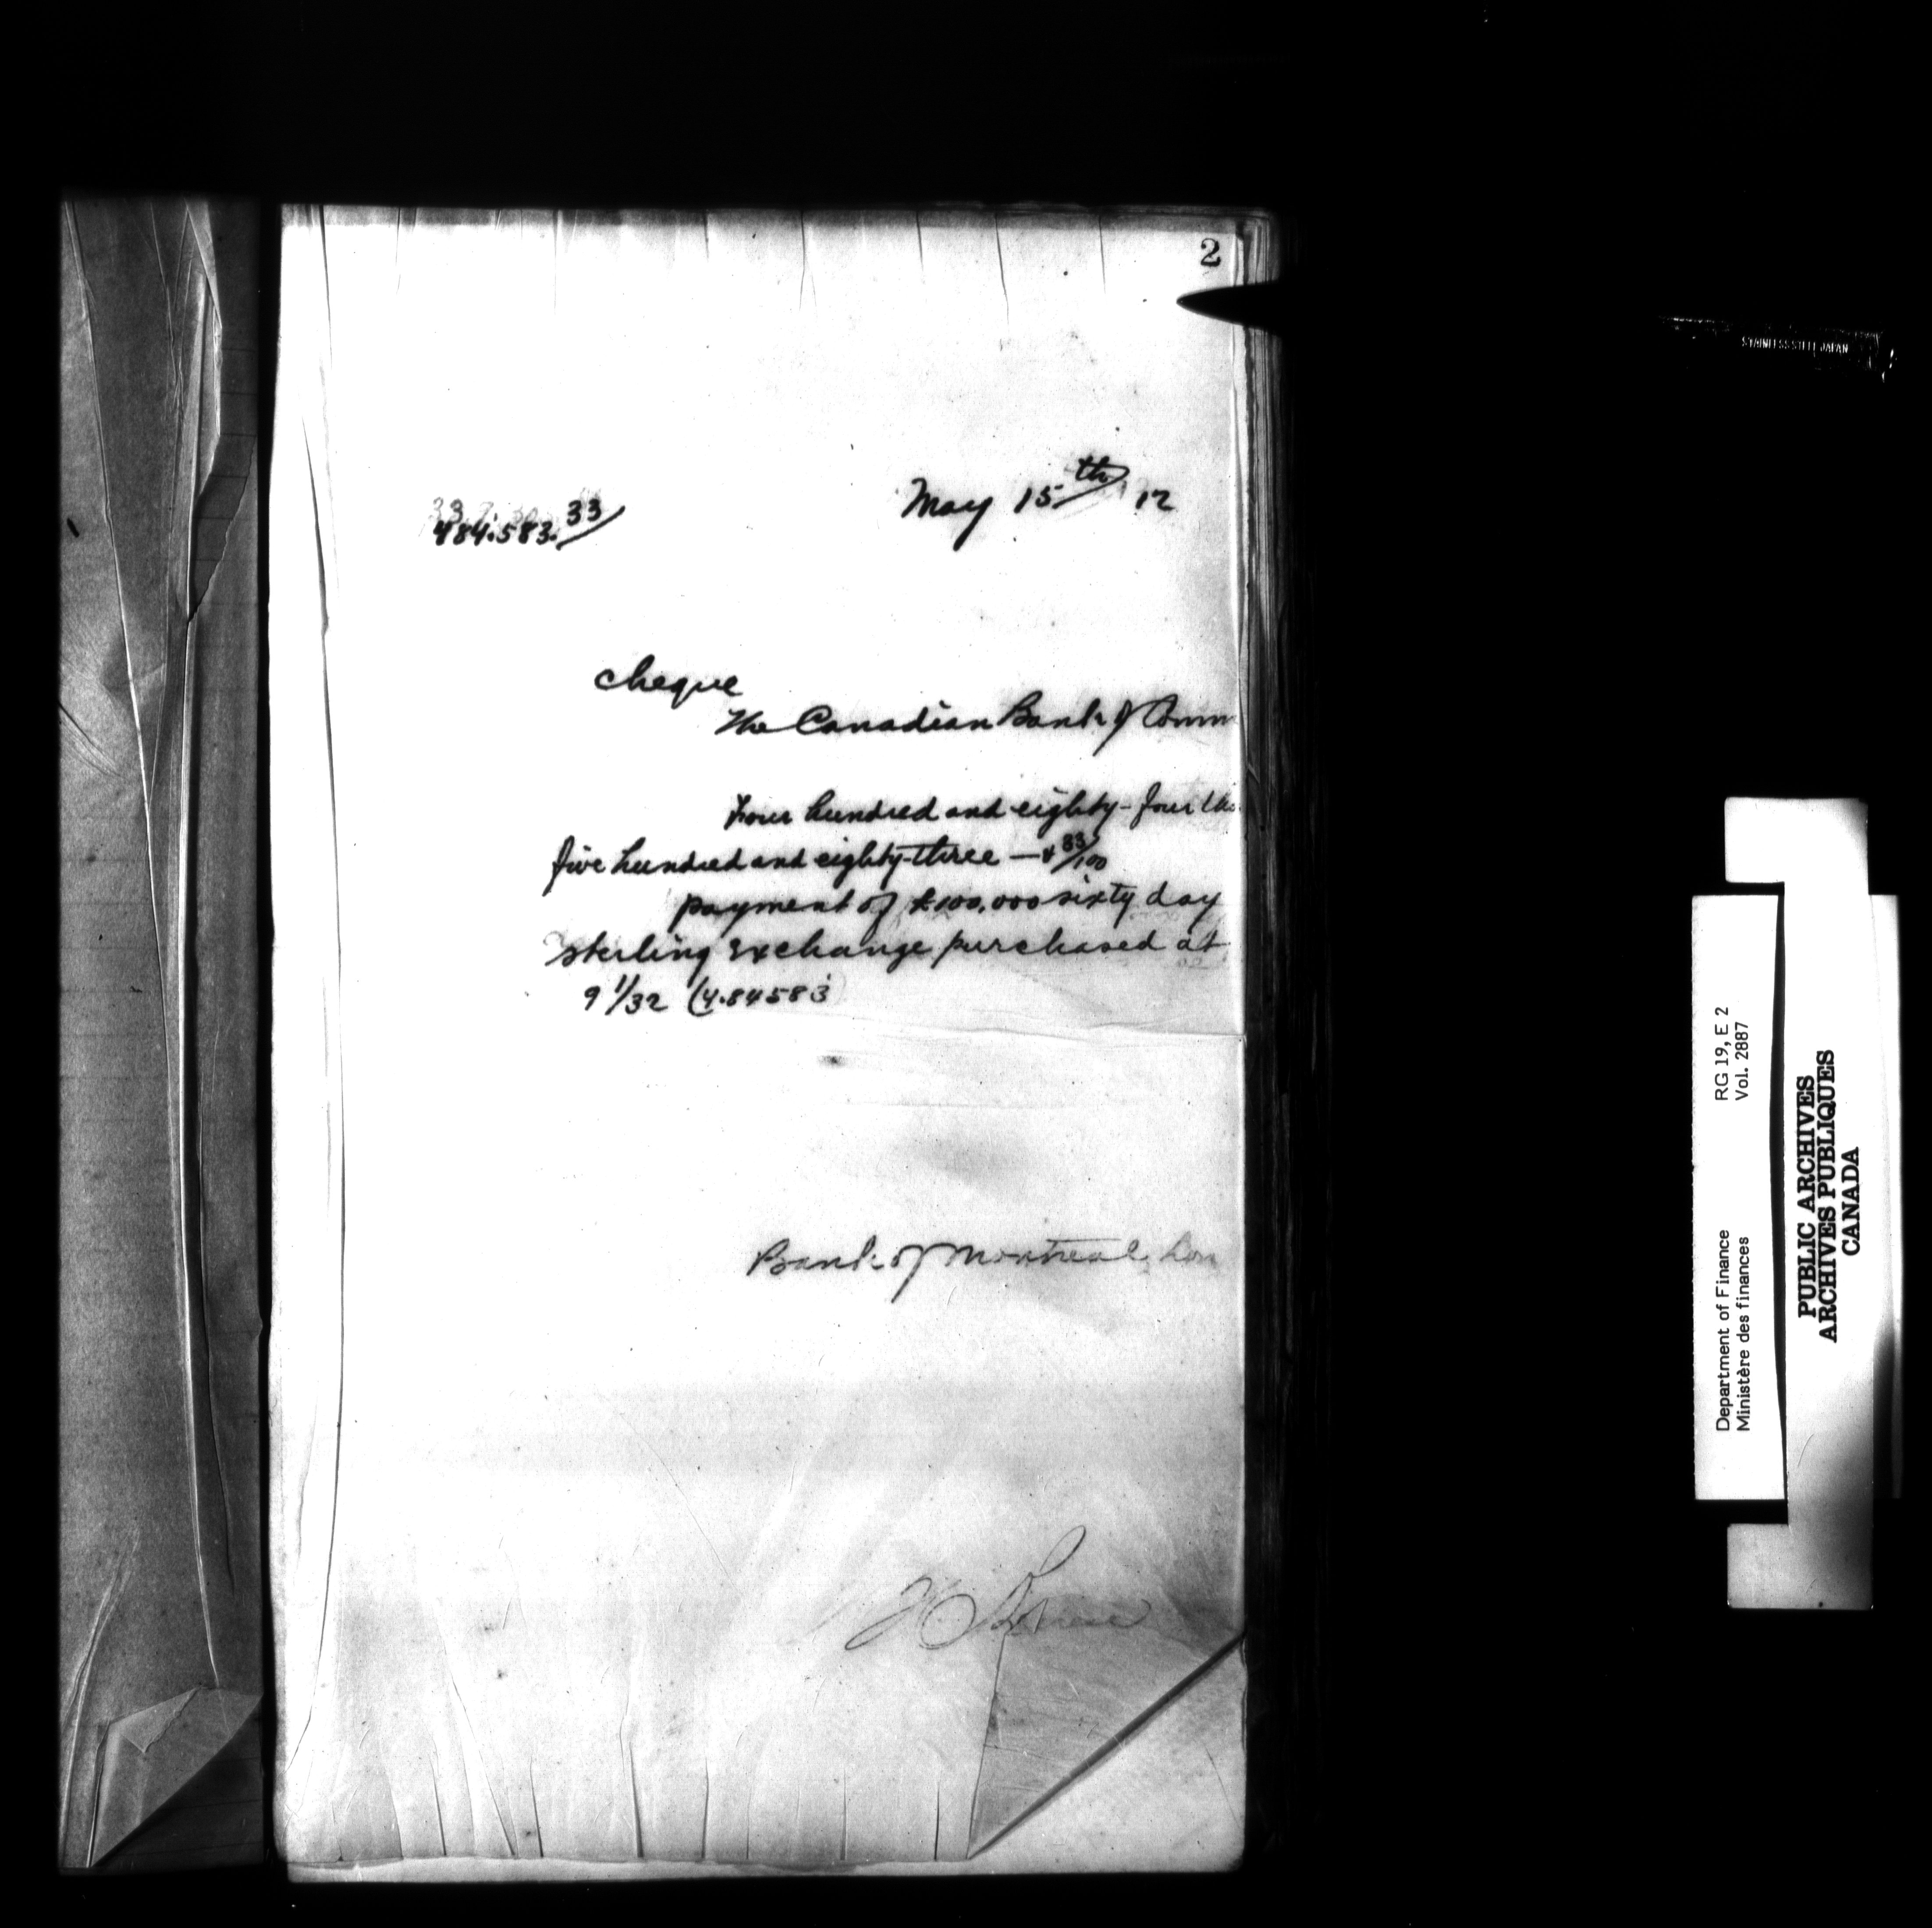 2
May 15th 12
484.583.33
cheque
The Canadian Bank of Comm
Four hundred and eighty-four tho
five hundred and eighty-three — & 33/100
payment of £100,000 sixty day
sterling exchange purchased at
9 1/32 (4.84583
Bank of Montreal, Lon
STAINLESS STEEL JAPAN
RG 19, E 2
Vol. 2887
Department of Finance
Ministère des finances
PUBLIC ARCHIVES
ARCHIVES PUBLIQUES
CANADA